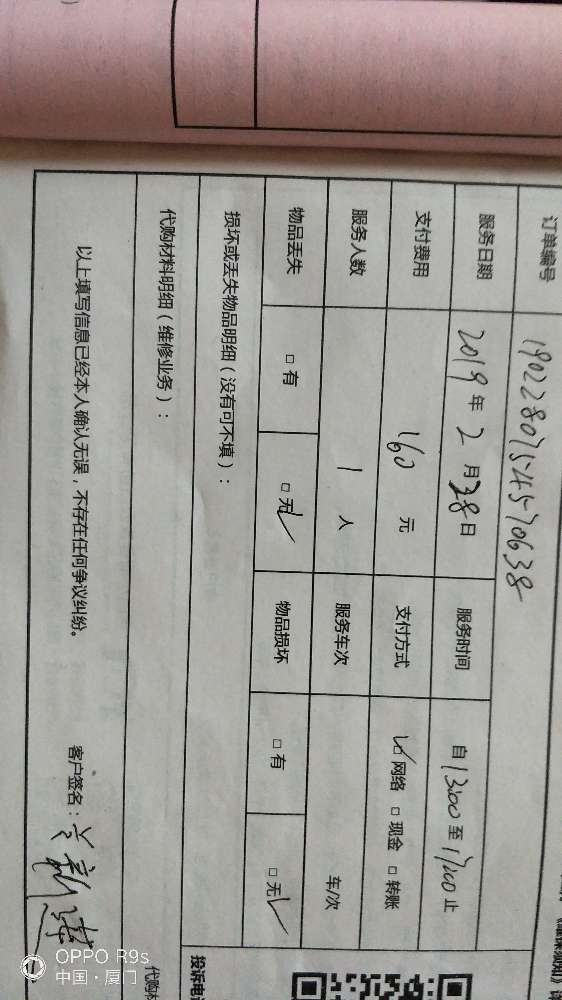 订单编号 1902280754570638
服务日期 2019年2月28日 服务时间 自13:00至17:00止
支付费用 160元 支付方式 □网络 □现金 □转账
服务人数 1人 服务车次 车/次
物品丢失 □有 □无 物品损坏 □有 □无
损坏或丢失物品明细（没有可不填）：
代购材料明细（维修业务）： 代购材
以上填写信息已经本人确认无误，不存在任何争议纠纷。 客户签名：
投诉电
OPPO R9s
中国·厦门